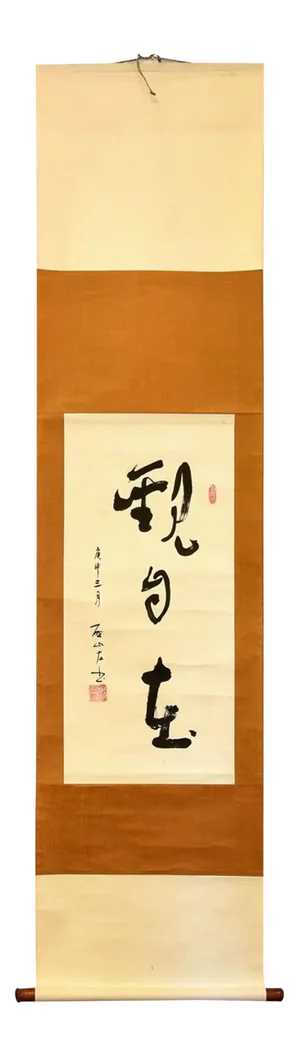 觀自在
庚申三月
石山